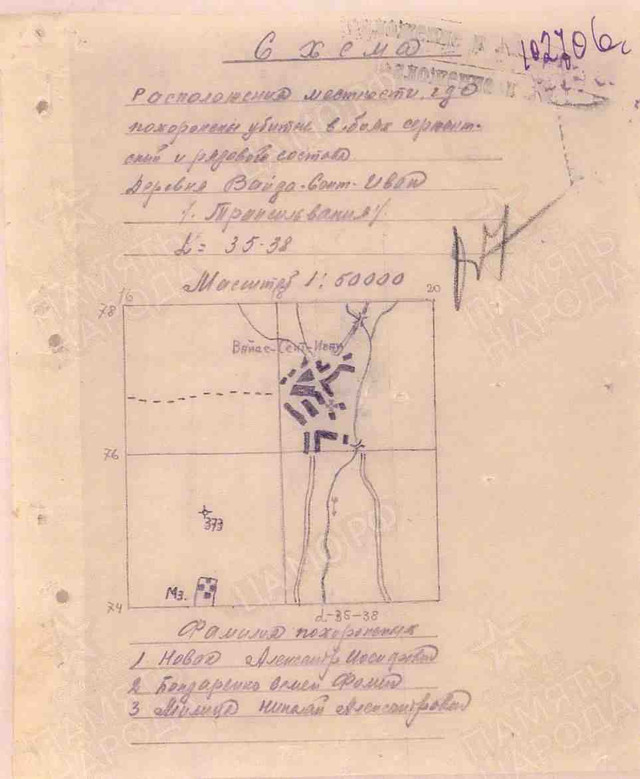 Схема
102706с
Расположения местности, где
похоронены убитые в боях сержант-
ский и рядового состава
Деревня Вайда-Сент-Иван
/. Трансильвания/.
L = 35-38
Масштаб 1:50000
78 16 20
Вайдс-Сент-Иван
76
373
Мз.
74
L-35-38
Фамилия похороненных
1 Новак Александр Иосифович
2 Бондаренко Семен Фомич
3 Николай Александрович
ПАМЯТЬ НАРОДА
ЦАМО РФ